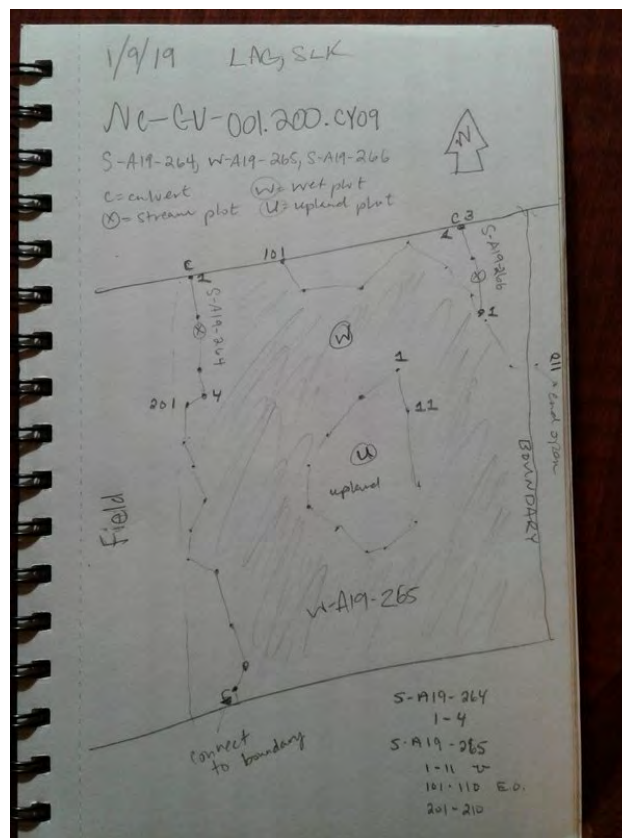 1/9/19 LAG, SLK
NC-CU-001.200.CY09
S-A19-264, W-A19-265, S-A19-266
C = culvert
W = wet plot
X = stream plot
U = upland plot
N
C
1
S-A19-264
101
C 3
S-A19-266
1
W
1
11
201
4
U
upland
Field
BOUNDARY
end open
W-A19-265
connect
to boundary
S-A19-264
1-4
S-A19-265
1-11
101-110 E.O.
201-210